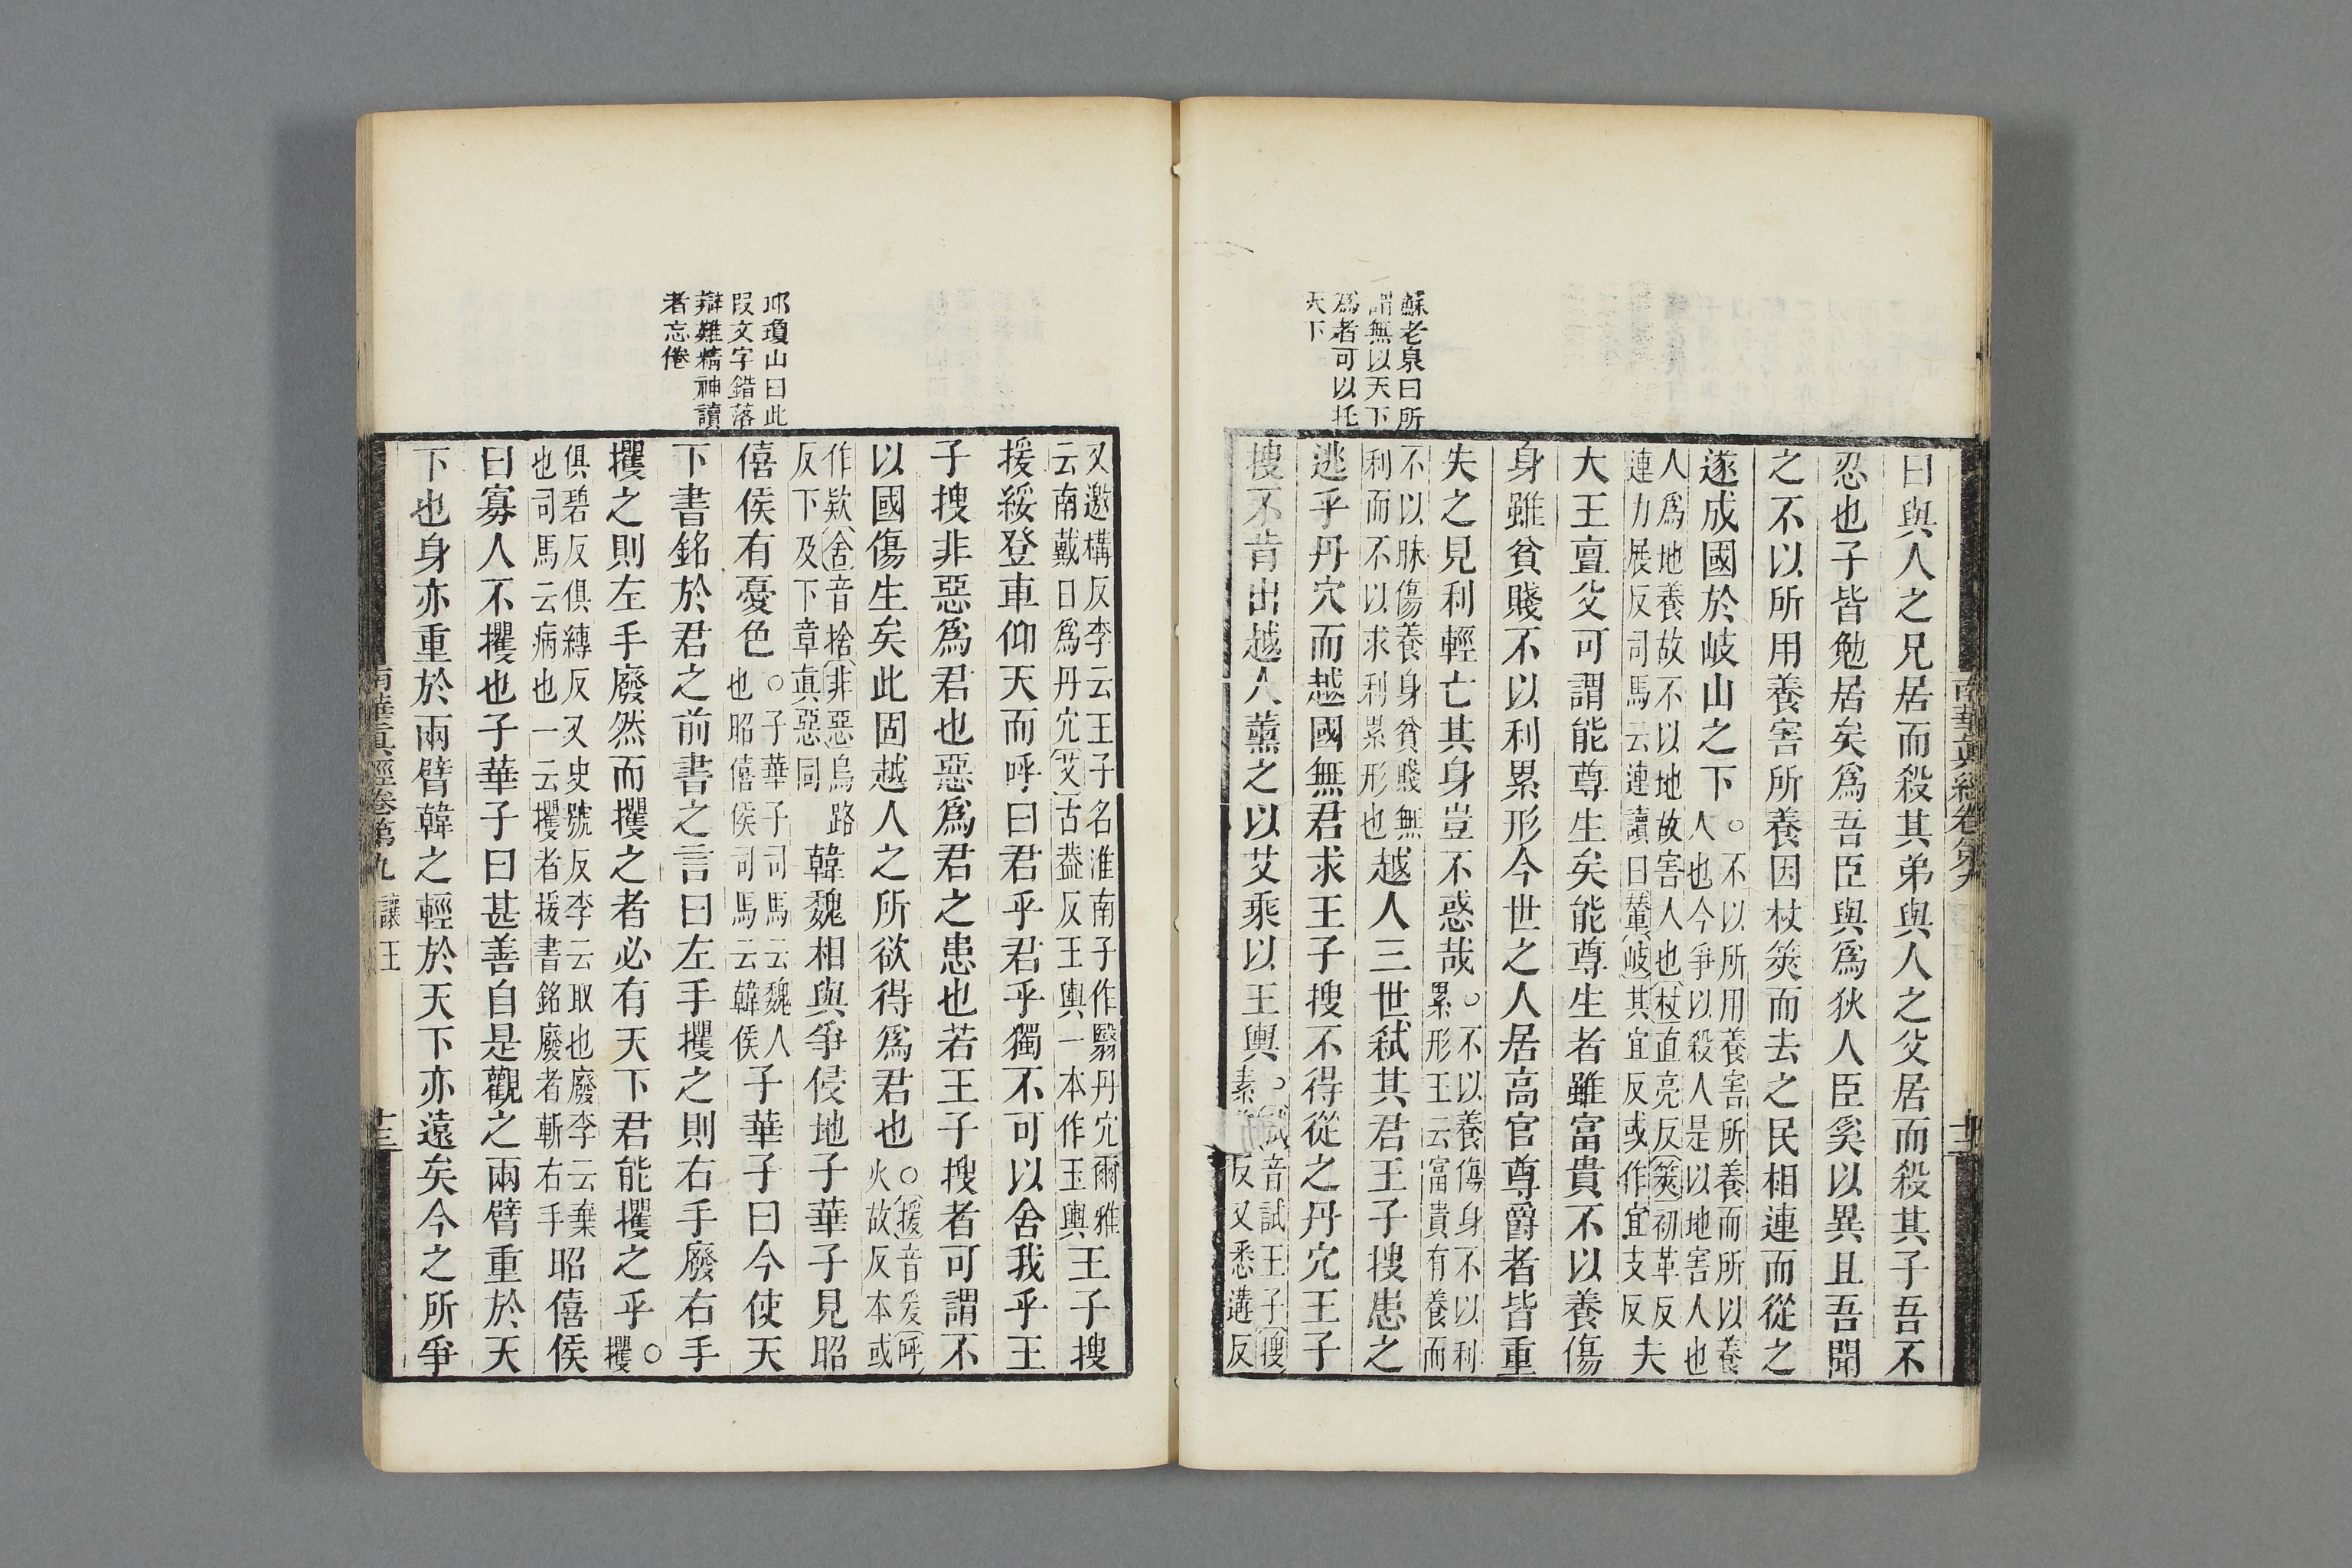 南華眞經卷第九
十二
蘇老泉曰所
謂無以天下
爲者可以托
天下
曰與人之兄居而殺其弟與人之父居而殺其子吾不
忍也子皆勉居矣爲吾臣與爲狄人臣奚以異且吾聞
之不以所用養害所養因杖筴而去之民相連而從之
遂成國於岐山之下○不以所用養害所養而所以養
人也今爭以殺人是以地害人也
人爲地養故不以地故害人也杖直亮反筴初革反
連力展反司馬云連讀曰輦岐其宜反或作宜支反夫
大王亶父可謂能尊生矣能尊生者雖富貴不以養傷
身雖貧賤不以利累形今世之人居高官尊爵者皆重
失之見利輕亡其身豈不惑哉○不以養傷身不以利
累形王云富貴有養而
不以昧傷養身貧賤無
利而不以求利累形也越人三世弑其君王子搜患之
逃乎丹穴而越國無君求王子搜不得從之丹穴王子
搜不肯出越人薰之以艾乘以王輿○弑音試王子搜
素反又悉遘反
邱瓊山曰此
段文字錯落
辯難精神讀
者忘倦
又邀構反李云王子名淮南子作翳丹穴爾雅
云南戴日爲丹穴艾古葢反王輿一本作玉輿王子搜
援綏登車仰天而呼曰君乎君乎獨不可以舍我乎王
子搜非惡爲君也惡爲君之患也若王子搜者可謂不
以國傷生矣此固越人之所欲得爲君也○援音爰呼
火故反本或
作欵舍音捨非惡烏路
反下及下章眞惡同韓魏相與爭侵地子華子見昭
僖侯有憂色○子華子司馬云魏人
也昭僖侯司馬云韓侯子華子曰今使天
下書銘於君之前書之言曰左手攫之則右手廢右手
攫之則左手廢然而攫之者必有天下君能攫之乎○
攫
俱碧反俱縛反又史虢反李云取也廢李云棄
也司馬云病也一云攫者援書銘廢者斬右手昭僖侯
曰寡人不攫也子華子曰甚善自是觀之兩臂重於天
下也身亦重於兩臂韓之輕於天下亦遠矣今之所爭
南華眞經卷第九 讓王
十三